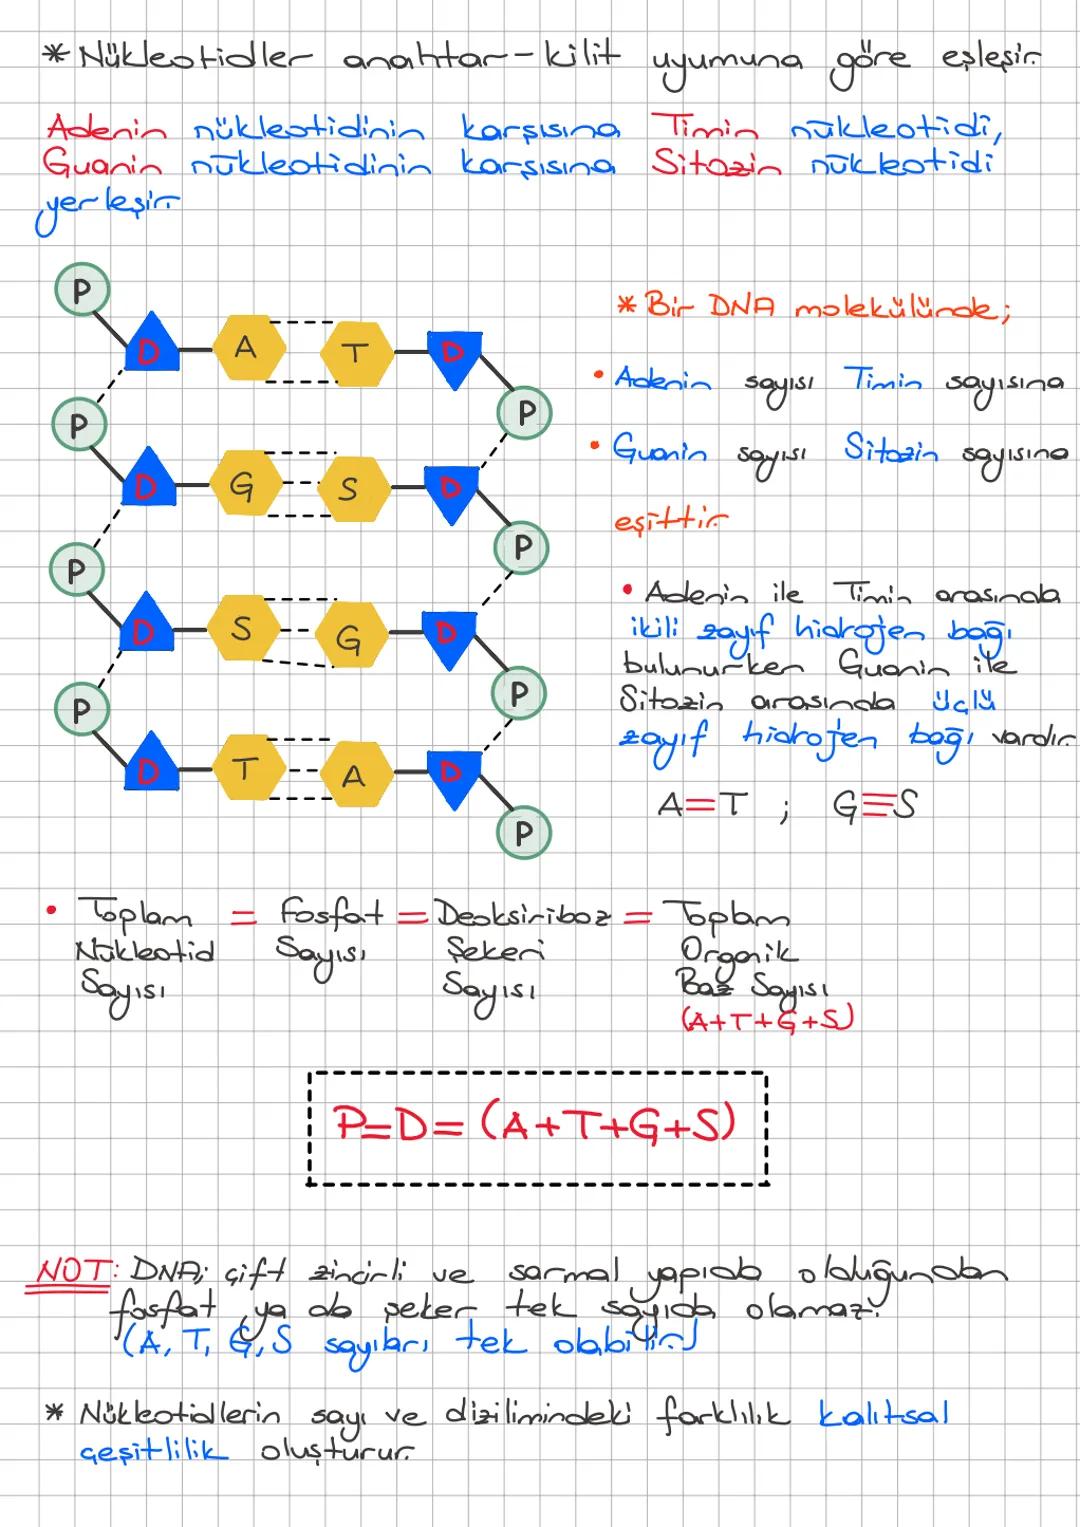 * Nükleotidler anahtar-kilit uyumuna göre eşleşir.
Adenin nükleotidinin karşısına Timin nükleotidi,
Guanin nükleotidinin karşısına Sitozin nükleotidi
yerleşir.
P
D A T D
P
P
D G S D
P
P
D S G D
P
P
D T A D
P
* Bir DNA molekülünde;
• Adenin sayısı Timin sayısına
• Guanin sayısı Sitozin sayısına
eşittir.
• Adenin ile Timin arasında
ikili zayıf hidrojen bağı
bulunurken Guanin ile
Sitozin arasında üçlü
zayıf hidrojen bağı vardır.
A=T ; G≡S
• Toplam = Fosfat = Deoksiriboz = Toplam
Nükleotid Sayısı Şekeri Organik
Sayısı Sayısı Baz Sayısı
(A+T+G+S)
P=D= (A+T+G+S)
NOT: DNA; çift zincirli ve sarmal yapıda olduğundan
fosfat ya da şeker tek sayıda olamaz.
(A, T, G, S sayıları tek olabilir.)
* Nükleotidlerin sayı ve dizilimindeki farklılık kalıtsal
çeşitlilik oluşturur.